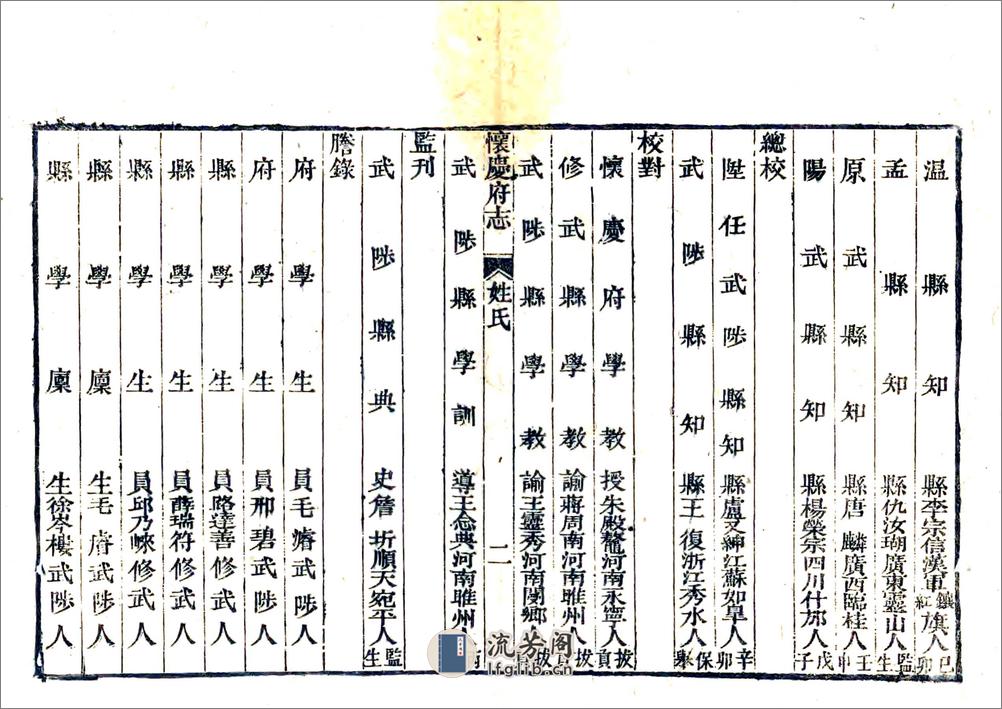 温縣知縣李宗信漢軍鑲紅旗人己卯
孟縣知縣仇汝瑚廣東靈山人監生
原武縣知縣唐麟廣西臨桂人壬申
陽武縣知縣楊榮宗四川什邡人戊子
總校
陞任武陟縣知縣盧又紳江蘇如臯人辛卯
武陟縣知縣王復浙江秀水人保舉
校對
懷慶府學教授朱殿鼇河南永寧人拔貢
修武縣學教諭蔣周南河南睢州人拔貢
武陟縣學教諭王靈秀河南閿鄉人拔貢
懷慶府志
姓氏
二
武陟縣學訓導王念典河南睢州人
監刊
武陟縣典史詹圻順天宛平人監生
謄錄
府學生員毛濬武陟人
府學生員邢碧武陟人
縣學生員路達善修武人
縣學生員薛瑞符修武人
縣學生員邱乃崍修武人
縣學廩生毛濬武陟人
縣學廩生徐岑樓武陟人
流芳阁
lfglib.cn